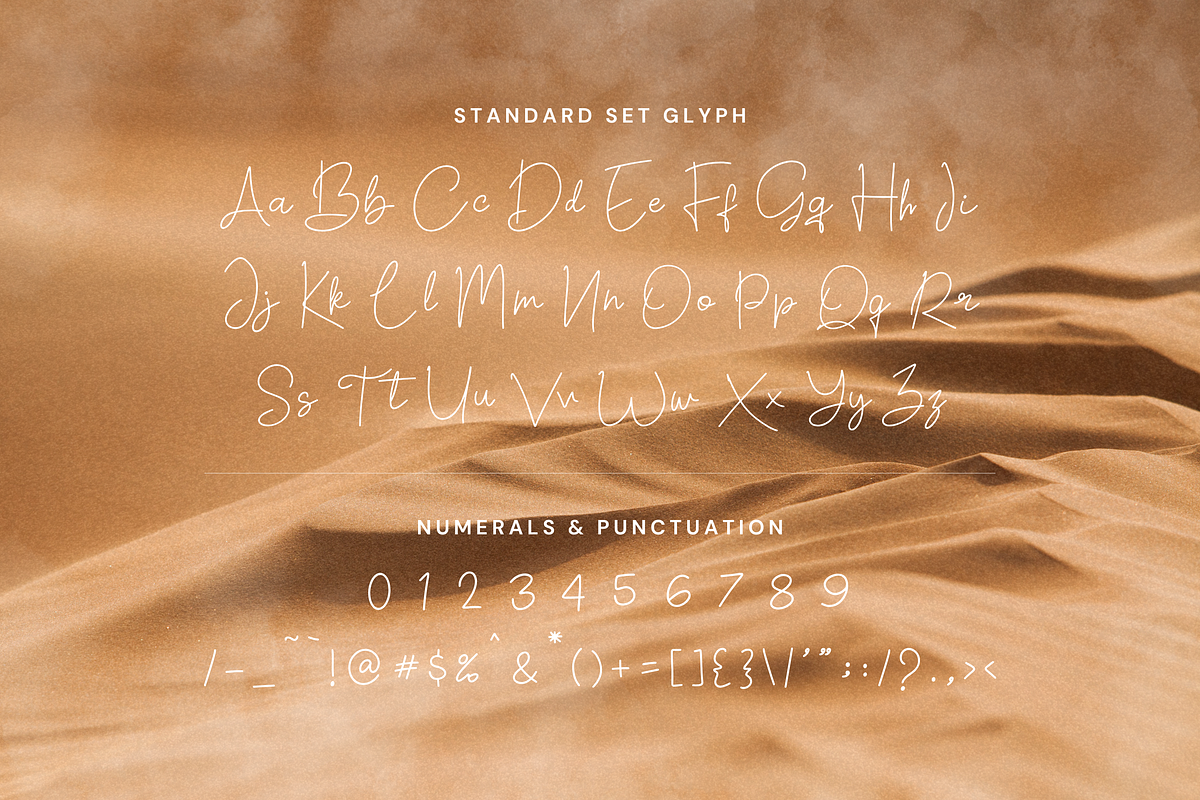 STANDARD SET GLYPH
Aa Bb Cc Dd Ee Ff Gg Hh Ii
Jj Kk Ll Mm Nn Oo Pp Qq Rr
Ss Tt Uu Vv Ww Xx Yy Zz
NUMERALS & PUNCTUATION
0 1 2 3 4 5 6 7 8 9
/ - _ ~ ` ! @ # $ % ^ & * ( ) + = [ ] { } \ / ' " ; : / ? . , > <